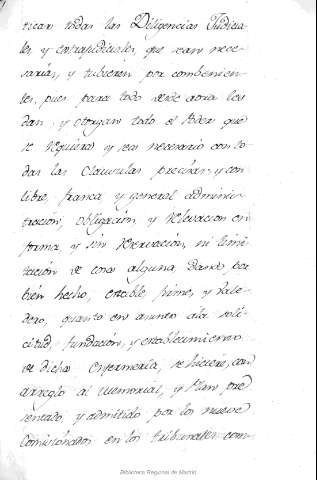 ticar todas las Diligencias Judicia-
les y extrajudiciales, que sean nece-
sarias, y tubieren por combenien-
tes, pues para todo desde aora les
dan, y otorgan todo el Poder que
se requiera y sea necesario con to-
das las Clausulas precisas, y con
libre, franca y general adminis-
tracion, obligacion, y relevacion en
forma, y sin reservacion, ni limi-
tacion de cosa alguna, dando por
bien hecho, estable, firme, y vale-
dero, quanto en asunto á la soli-
citud, fundacion, y establecimiento
de dicha Enfermería, se hiciere, con
arreglo al Memorial, y Plan pre-
sentado, y admitido por los nueve
Comisionados en los tribunales com-
Biblioteca Regional de Madrid